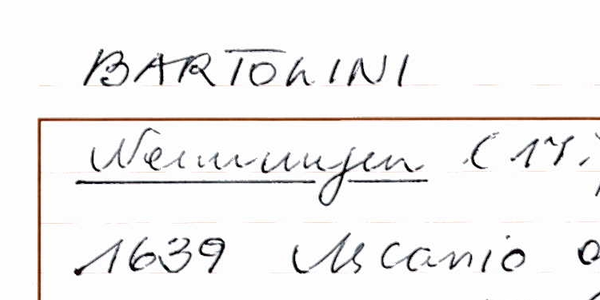 BARTOLINI
Nennungen (17.
1639 Ascanio